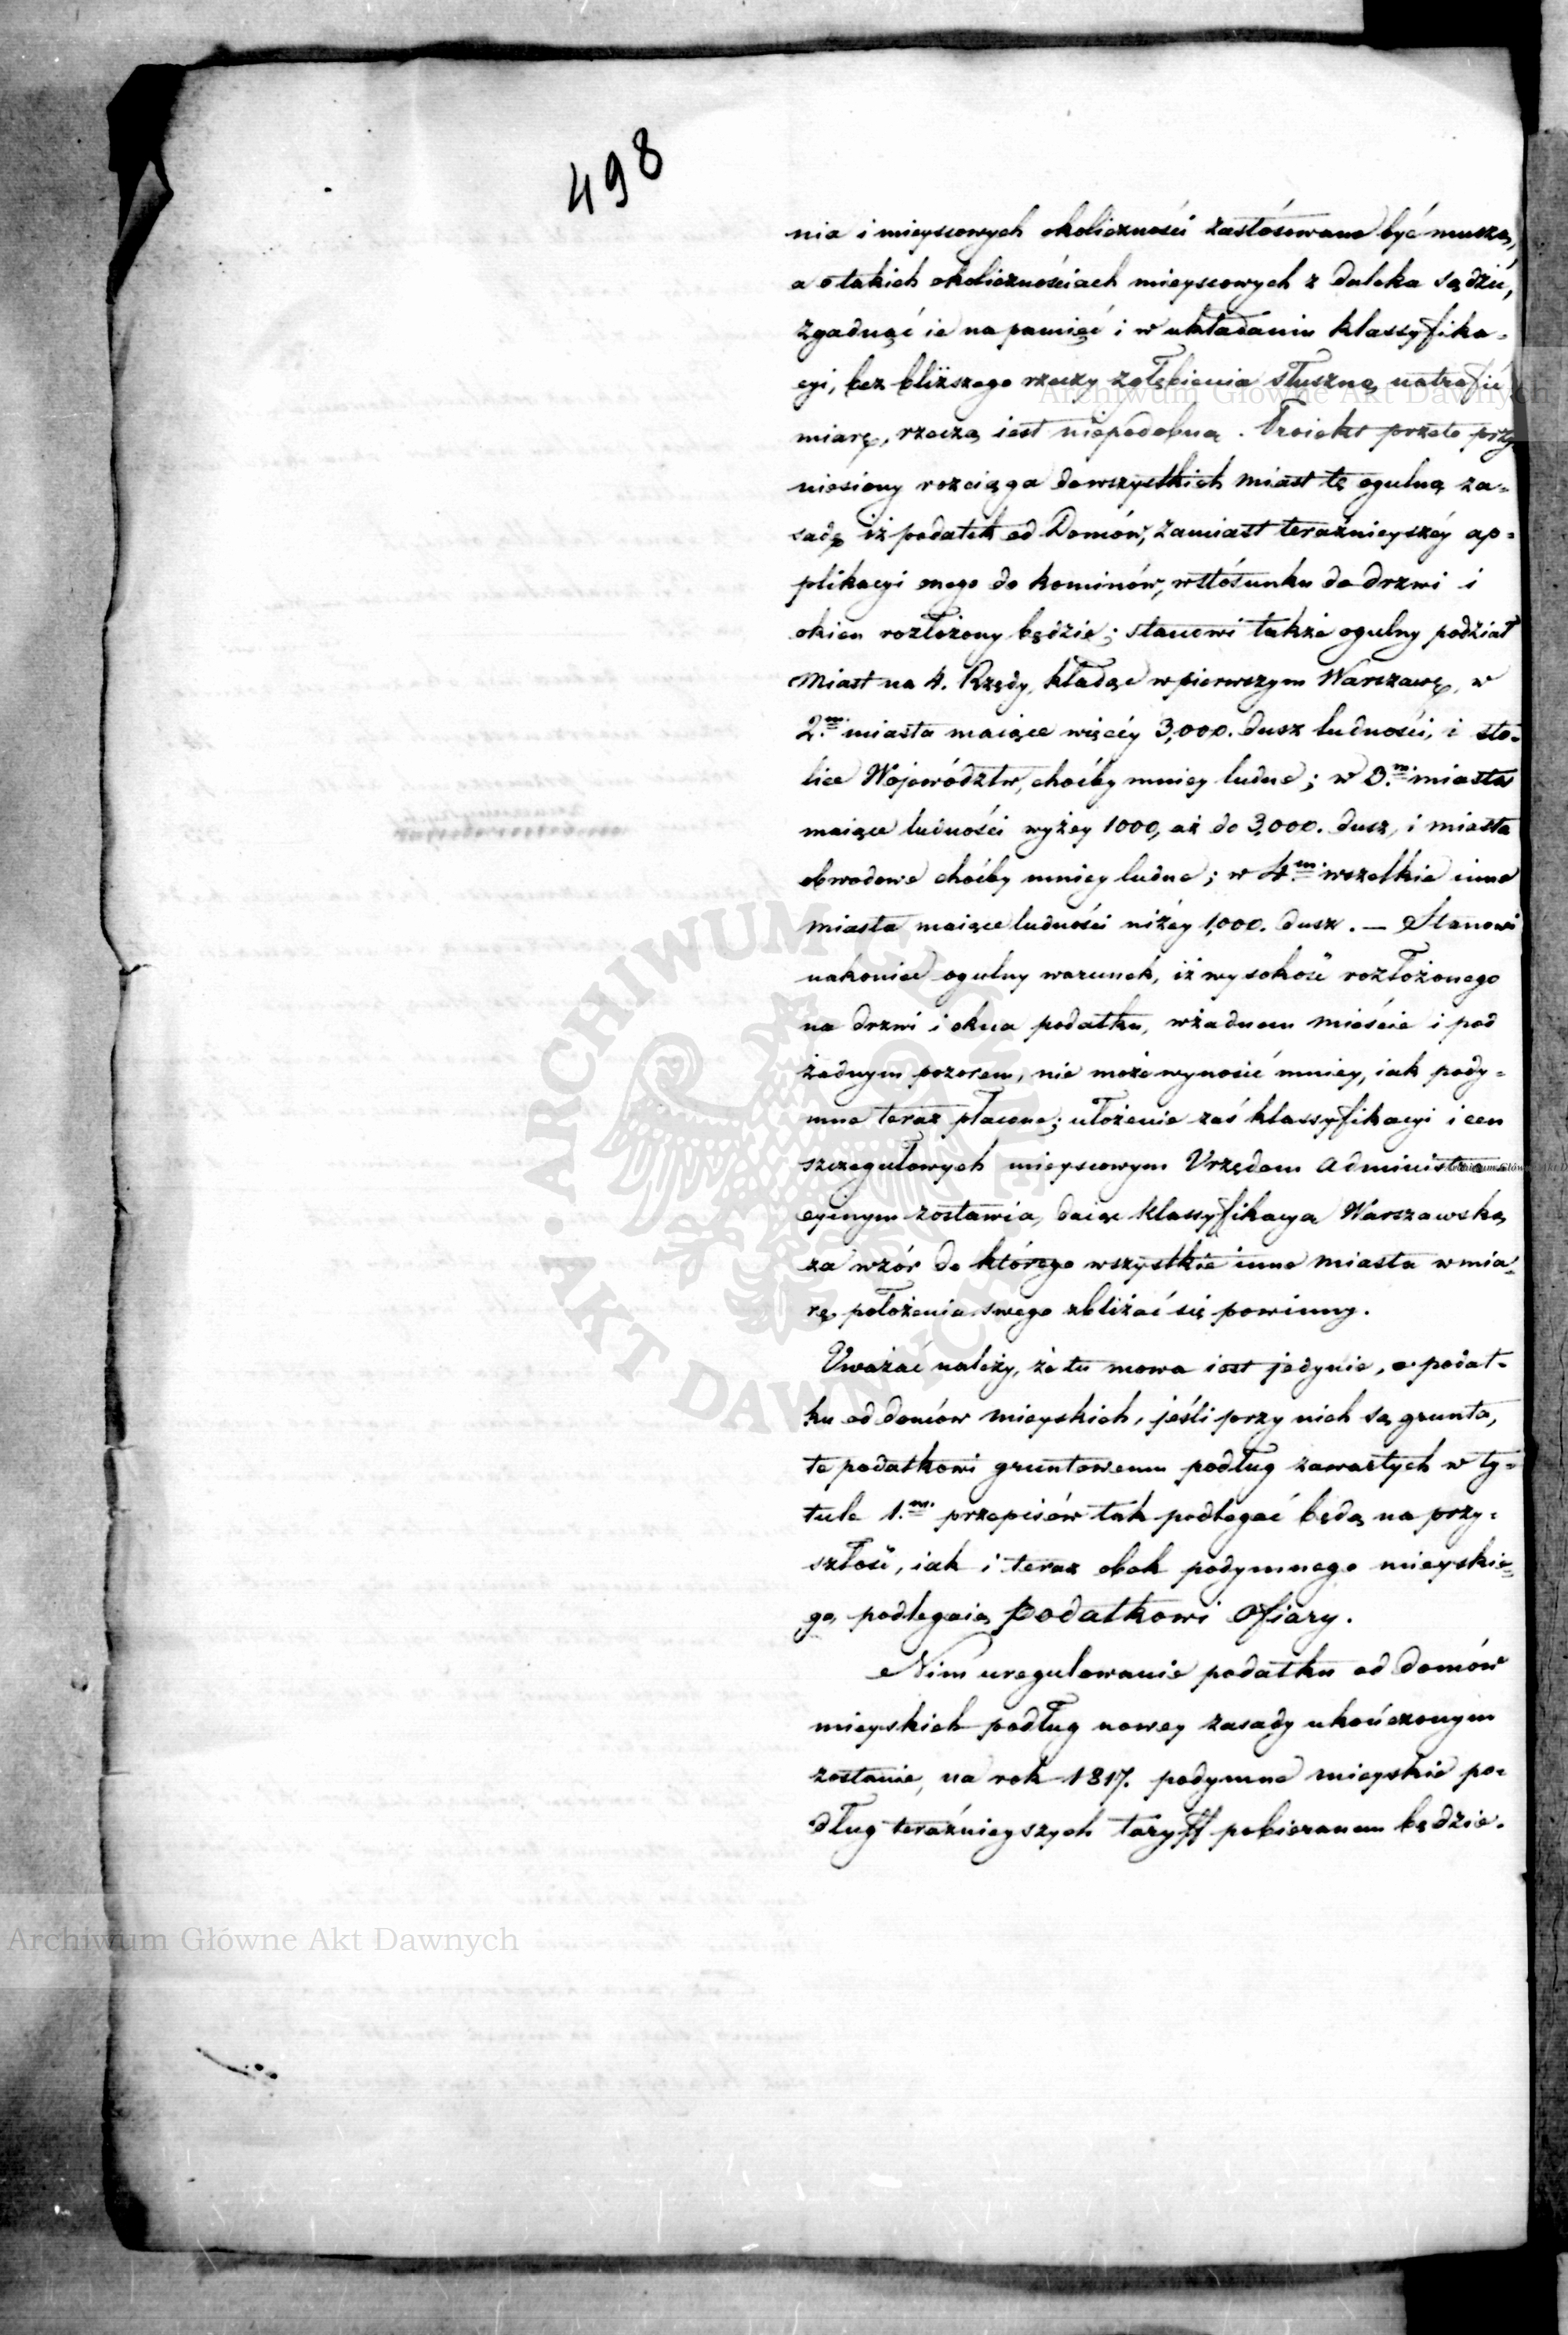 498
nia i mieyscowych okoliczności zastósowane być muszą,
a o takich okolicznościach mieyscowych z daleka sądzić,
zgadnąć ie na pamięć i w układaniu klassyfika=
cyi, bez bliższego rzeczy zgłębienia słuszną utrafić
miarę, rzeczą iest niepodobną. Proiekt przeto przy
niesiony rozciąga do wszystkich miast tę ogulną za=
sadę iż podatek od Domów, zamiast teraźnieyszéy ap=
plikacyi onego do kominów, w stósunku do drzwi i
okien rozłożony będzie; stanowi także ogulny podział
Miast na 4. Rzędy, kładąc w pierwszym Warszawę, w
2.m miasta maiące więcéy 3,000. dusz ludności, i sto=
lice Województw, choćby mniey ludne; w 3.m miasta
maiące ludności wyżey 1000, aż do 3,000. dusz, i miasta
obwodowe choćby mniey ludne; w 4.m wszelkie inne
miasta maiące ludności niżéy 1,000. dusz. — Stanowi
nakoniec ogulny warunek, iż wysokość rozłożonego
na drzwi i okna podatku, w żadnem mieście i pod
żadnym pozorem, nie może wynosić mniey, iak pody=
mne teraz płacone; ułożenie zaś klassyfikacyi i cen
szczegułowych mieyscowym Urzędom administra=
cyinym zostawia, daiąc klassyfikacyą Warszawską
za wzór do którego wszystkie inne miasta w mia=
rę położenia swego zbliżać się powinny.
Uważać należy, że tu mowa iest jedynie, o podat=
ku od domów mieyskich, jeśli przy nich są grunta,
te podatkowi gruntowemu podług zawartych w ty=
tule 1.m przepisów tak podlegać będą na przy=
szłość, iak i teraz obok podymnego mieyskie=
go, podlegaią Podatkowi Ofiary.
Nim uregulowanie podatku od domów
mieyskich podług nowey zasady ukończonym
zostanie, na rok 1817. podymne mieyskie po=
dług teraźnieyszych taryff pobieranem będzie.
Archiwum Główne Akt Dawnych
Archiwum Główne Akt Dawnych
ARCHIWUM GŁÓWNE AKT DAWNYCH